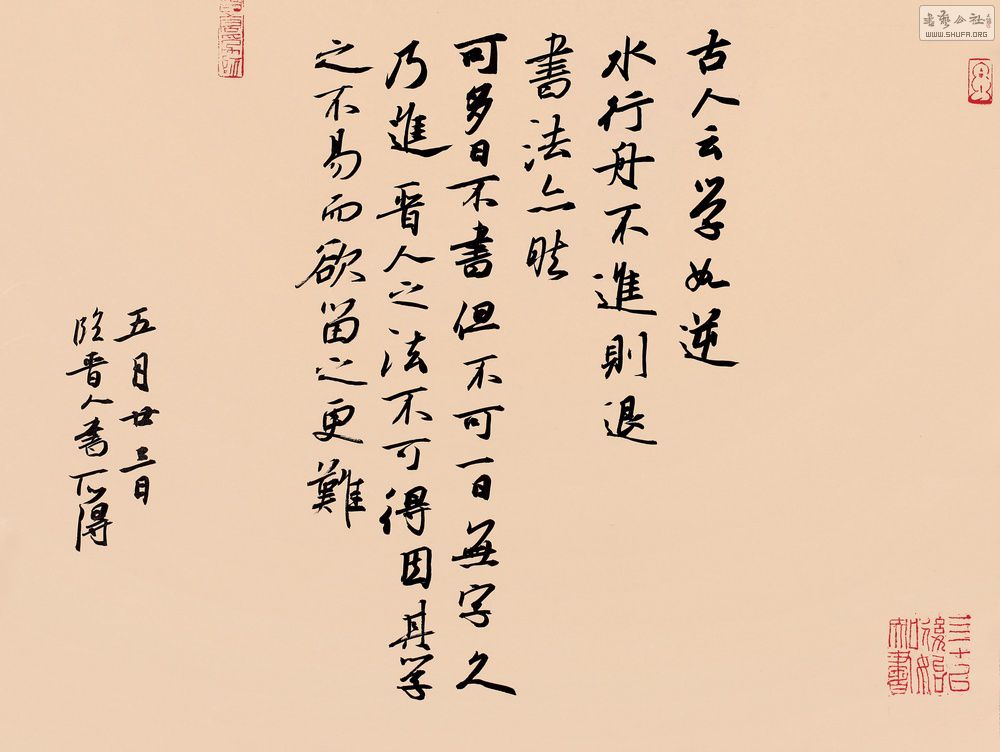 古人云学如逆
水行舟不進則退
書法亦然
可多日不書但不可一日無字久
乃進晋人之法不可得因其学
之不易而欲留之更難
五月廿三日
临晋人書所得
三十以後始知書
書藝公社
WWW.SHUFA.ORG